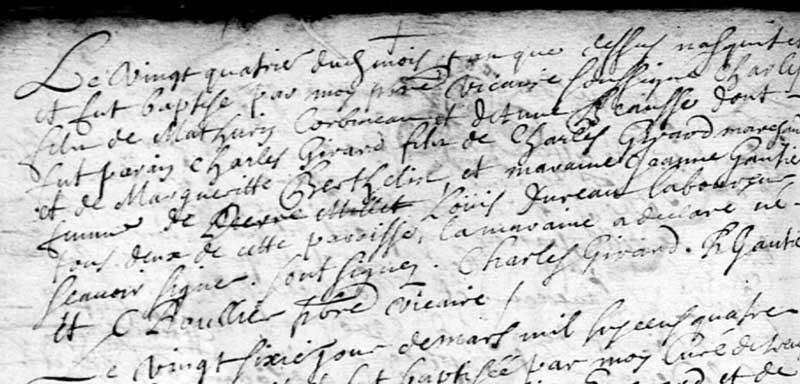 Le vingt quatrie du mois et an que dessus nasquit et
et fut baptise par moy pbre vicaire soussigne Charles
filz de Mathurin Corbineau et detienne Beausse dont
fut parain Charles Girard filz de Charles Girard marchan
et de Margueritte Berthelin et maraine Jeanne Gautier
femme de Louis Dureau laboureur
tous deux de cette paroisse, la maraine a declare ne
scavoir signe. sont signez. Charles Girard. R Gautie
et C Roullier pbre vicaire
Le vingt sixie jour de mars mil six cens quatre
baptisée par moy Curé
et de